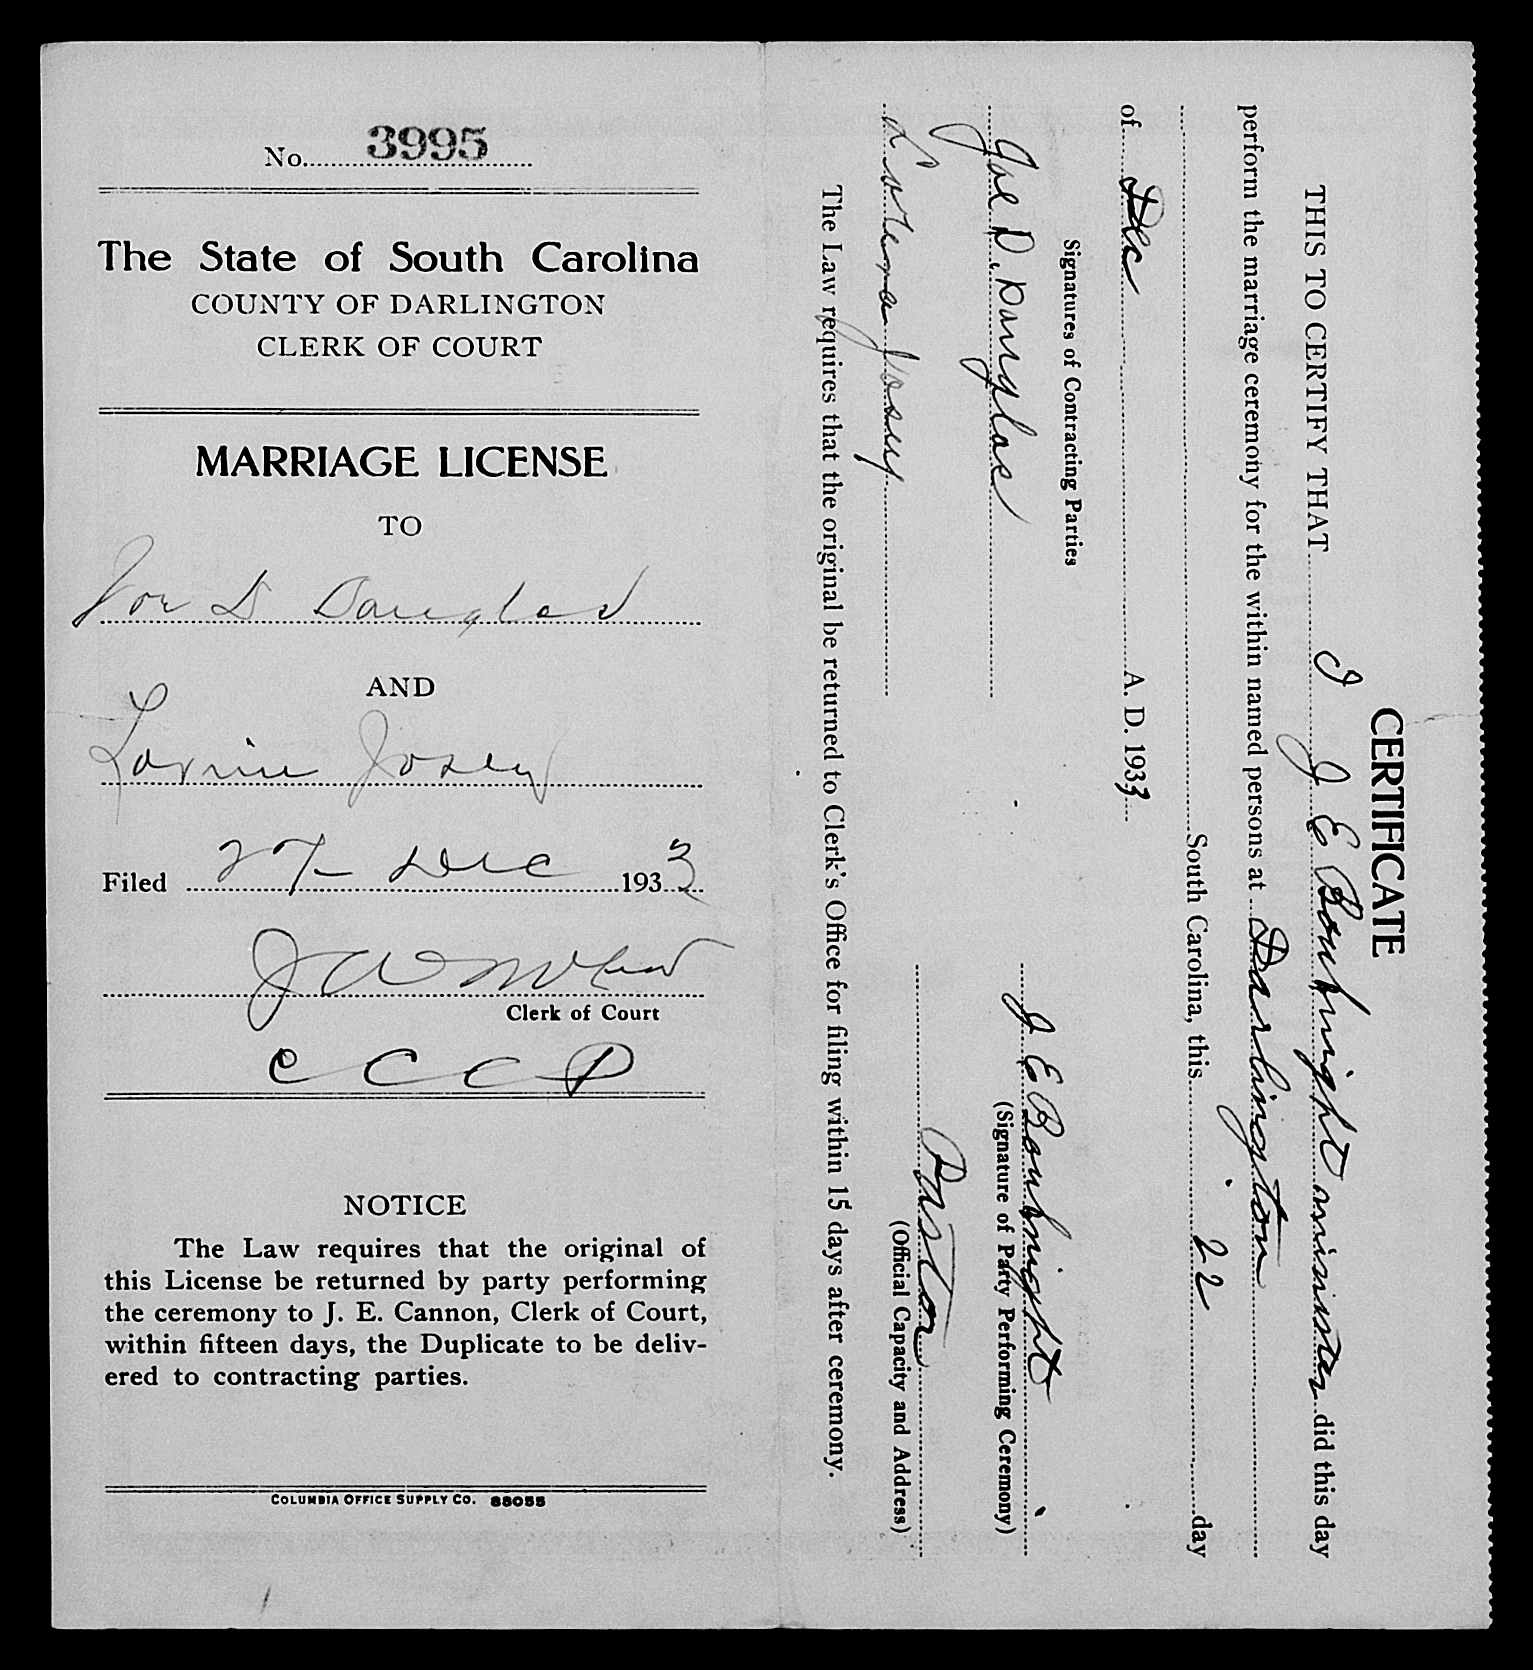 No. 3995
The State of South Carolina
COUNTY OF DARLINGTON
CLERK OF COURT
MARRIAGE LICENSE
TO
Joe D Douglas
AND
Lorine Josey
Filed 27 Dec 1933
J W
Clerk of Court
C C C P
NOTICE
The Law requires that the original of
this License be returned by party performing
the ceremony to J. E. Cannon, Clerk of Court,
within fifteen days, the Duplicate to be deliv-
ered to contracting parties.
COLUMBIA OFFICE SUPPLY CO. 88055
CERTIFICATE
THIS TO CERTIFY THAT I J E Bouknight minister did this day
perform the marriage ceremony for the within named persons at Darlington
South Carolina, this 22 day
of Dec A. D. 1933
Signatures of Contracting Parties
Joe D. Douglas
Josey
J E Bouknight
(Signature of Party Performing Ceremony)
Pastor
(Official Capacity and Address)
The Law requires that the original be returned to Clerk's Office for filing within 15 days after ceremony.